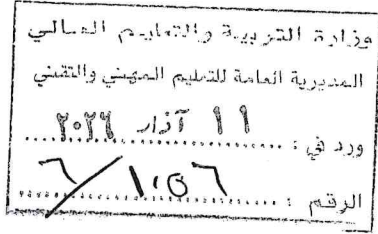 وزارة التربية والتعليم العالي
المديرية العامة للتعليم المهني والتقني
ورد في : ١١ آذار ٢٠٢٦
الرقم : ٦/١٠٥٦